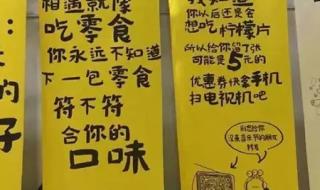 的
子
相遇就像
吃零食
你永远不知道
下一包零食
符不符
合你的
口味
你以后还是会
想吃柠檬片
所以给你留了张
可能是5元的
优惠券快拿手机
扫电视机吧